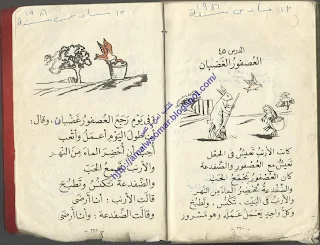 الدرس ٤٥
العصفور الغضبان
كانت الأرنب تعيش في الحقل
تعيش مع العصفور والضفدعة
كان العصفور يجمع الحب
والضفدعة تحضر الماء من النهر
والأرنب في البيت، تكنس، وتطبخ
وكل واحد يعمل عمله وهو مسرور
في يوم رجع العصفور غضبان، وقال:
طول اليوم أعمل وأتعب
يجب أن أحضر الماء من النهر
والأرنب تجمع الحب
والضفدعة تكنس وتطبخ
قالت الأرنب: أنا أرضى
وقالت الضفدعة: أنا أرضى